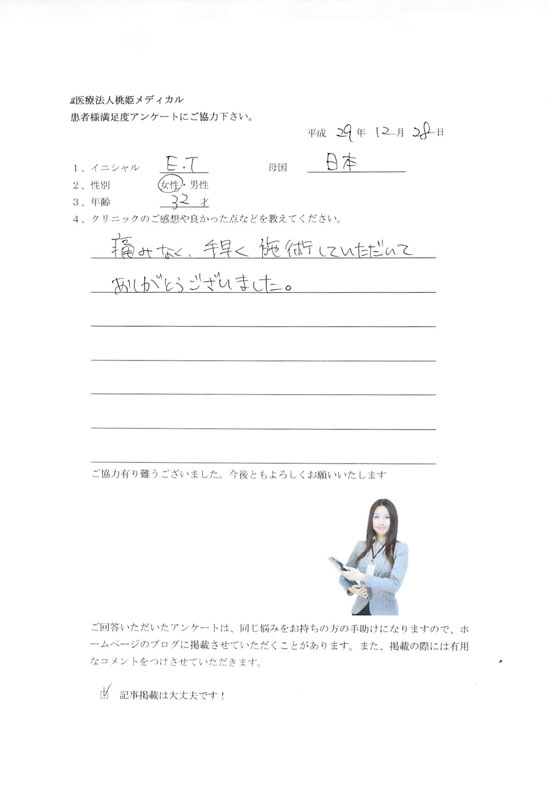 医療法人桃姫メディカル
患者様満足度アンケートにご協力下さい。
平成 29 年 12 月 28 日
1、イニシャル E.T 母国 日本
2、性別 女性・男性
3、年齢 32 才
4、クリニックのご感想や良かった点などを教えてください。
痛みなく、手早く施術していただいて
ありがとうございました。
ご協力有り難うございました。今後ともよろしくお願いいたします
ご回答いただいたアンケートは、同じ悩みをお持ちの方の手助けになりますので、ホ
ームページのブログに掲載させていただくことがあります。また、掲載の際には有用
なコメントをつけさせていただきます。
☑ 記事掲載は大丈夫です！